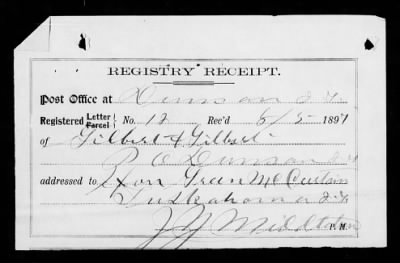 REGISTRY RECEIPT.
Post Office at Duncan I.T.
Registered Letter Parcel No. 12 Rec'd 6/5 1897
of Gilbert & Gilbert
P O Duncan I.T.
addressed to Hon Green McCurtain
Tuskahoma I.T.
P. M.